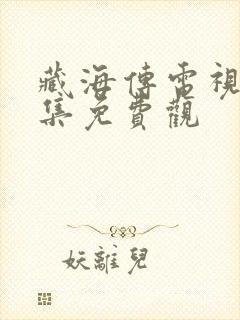 藏海傳電視
集免費觀
妖離兒